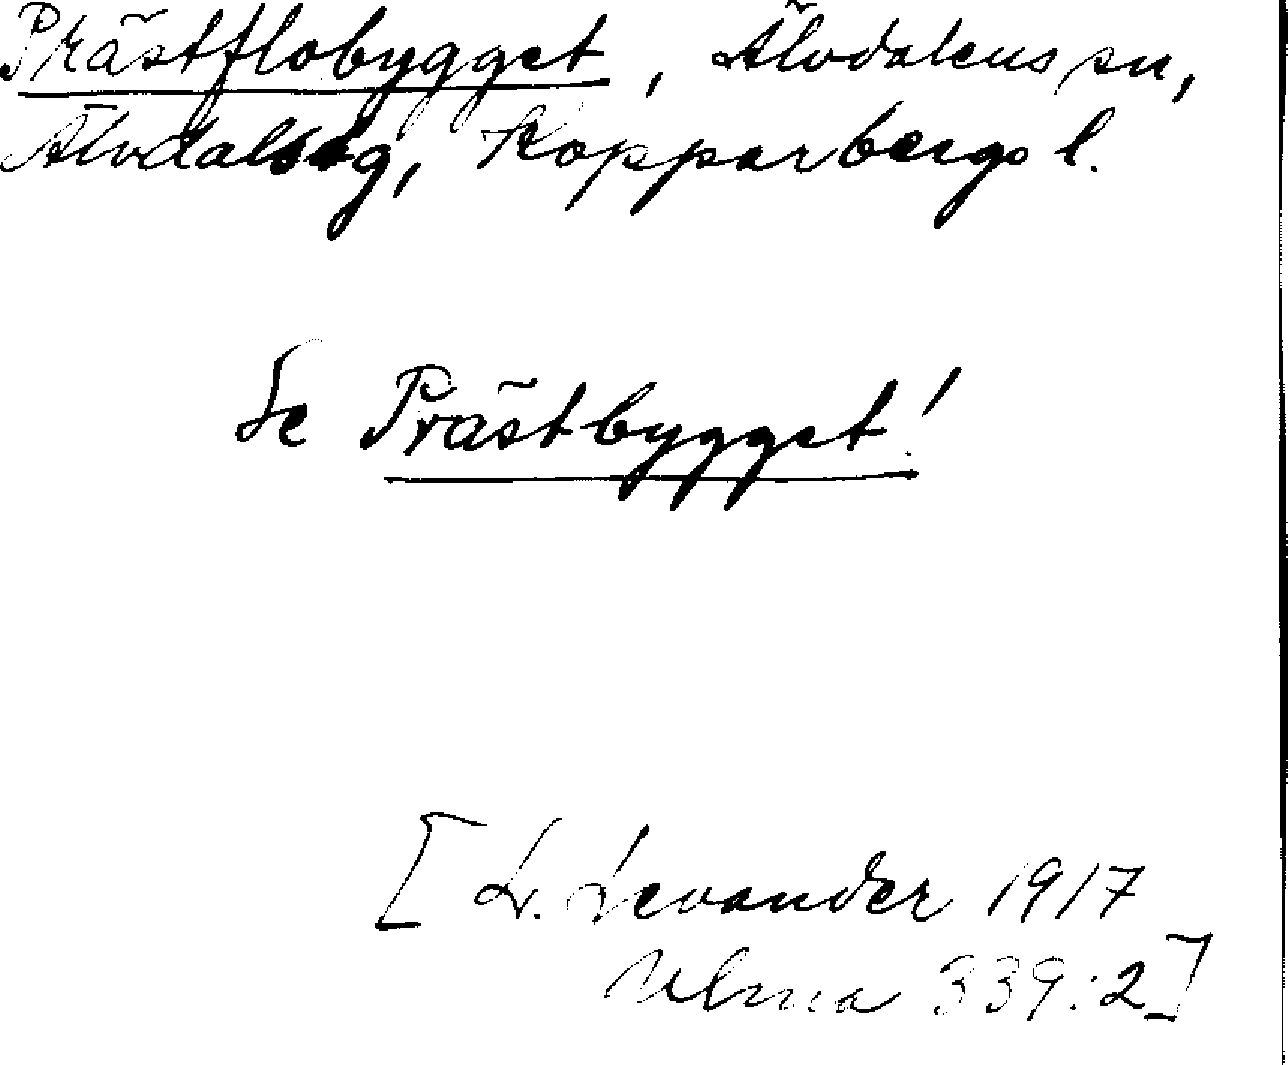 Prästflobygget, Älvdalens sn,
Älvdals tg, Kopparbergs l.
Se Prästbygget!
[L. Levander 1917
Ulma 339:2]